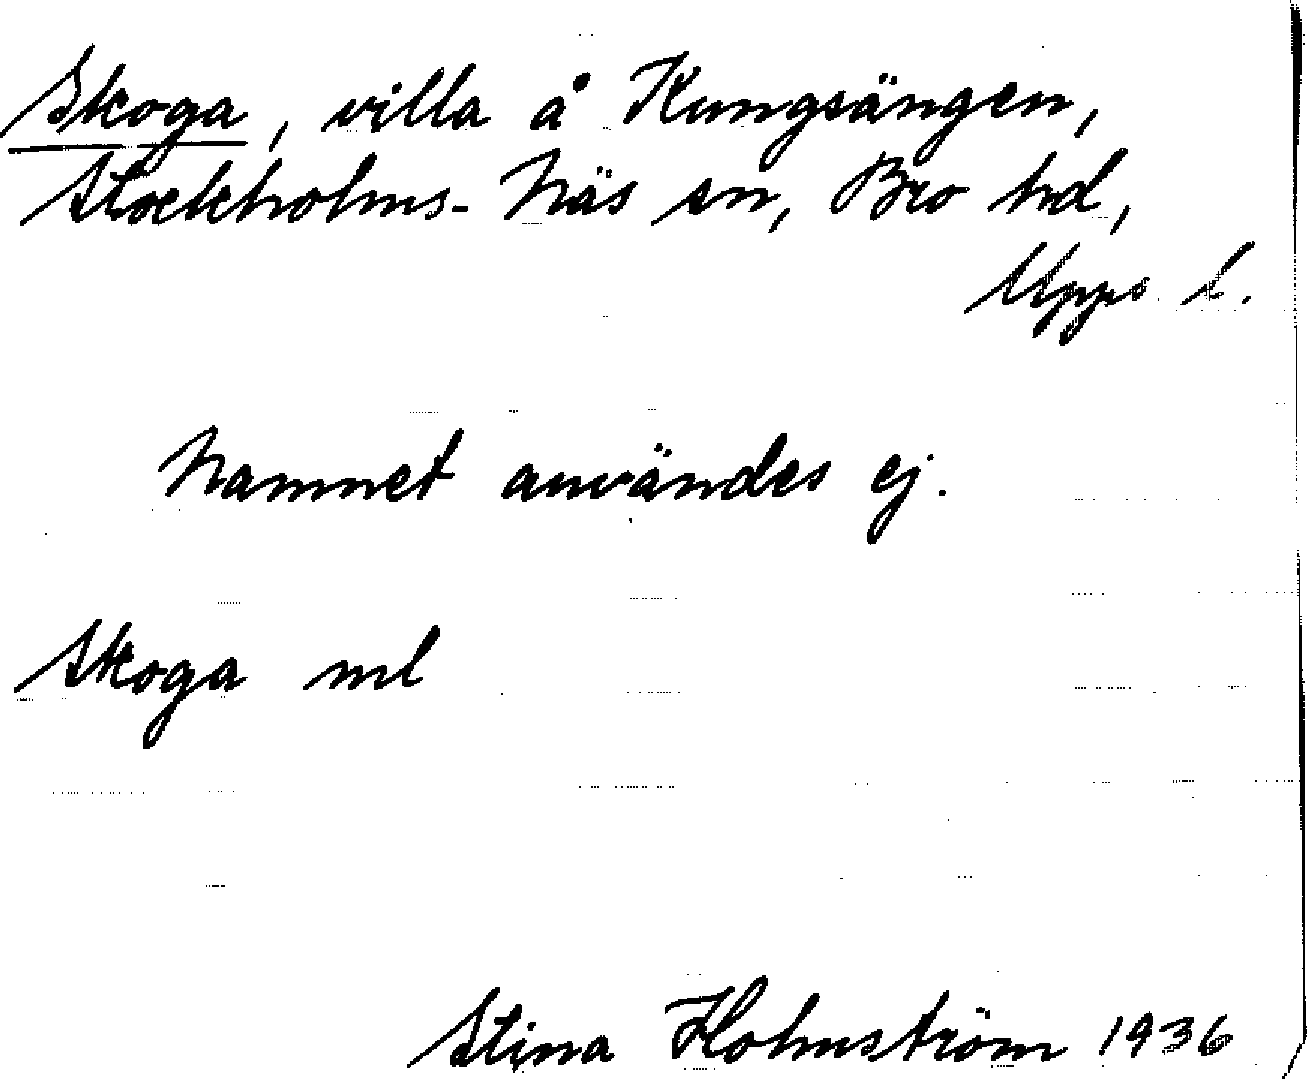 Skoga, villa å Kungsängen,
Stockholms-Näs sn, Bro hd,
Upps l.
Namnet användes ej.
Skoga ml
Stina Holmström 1936